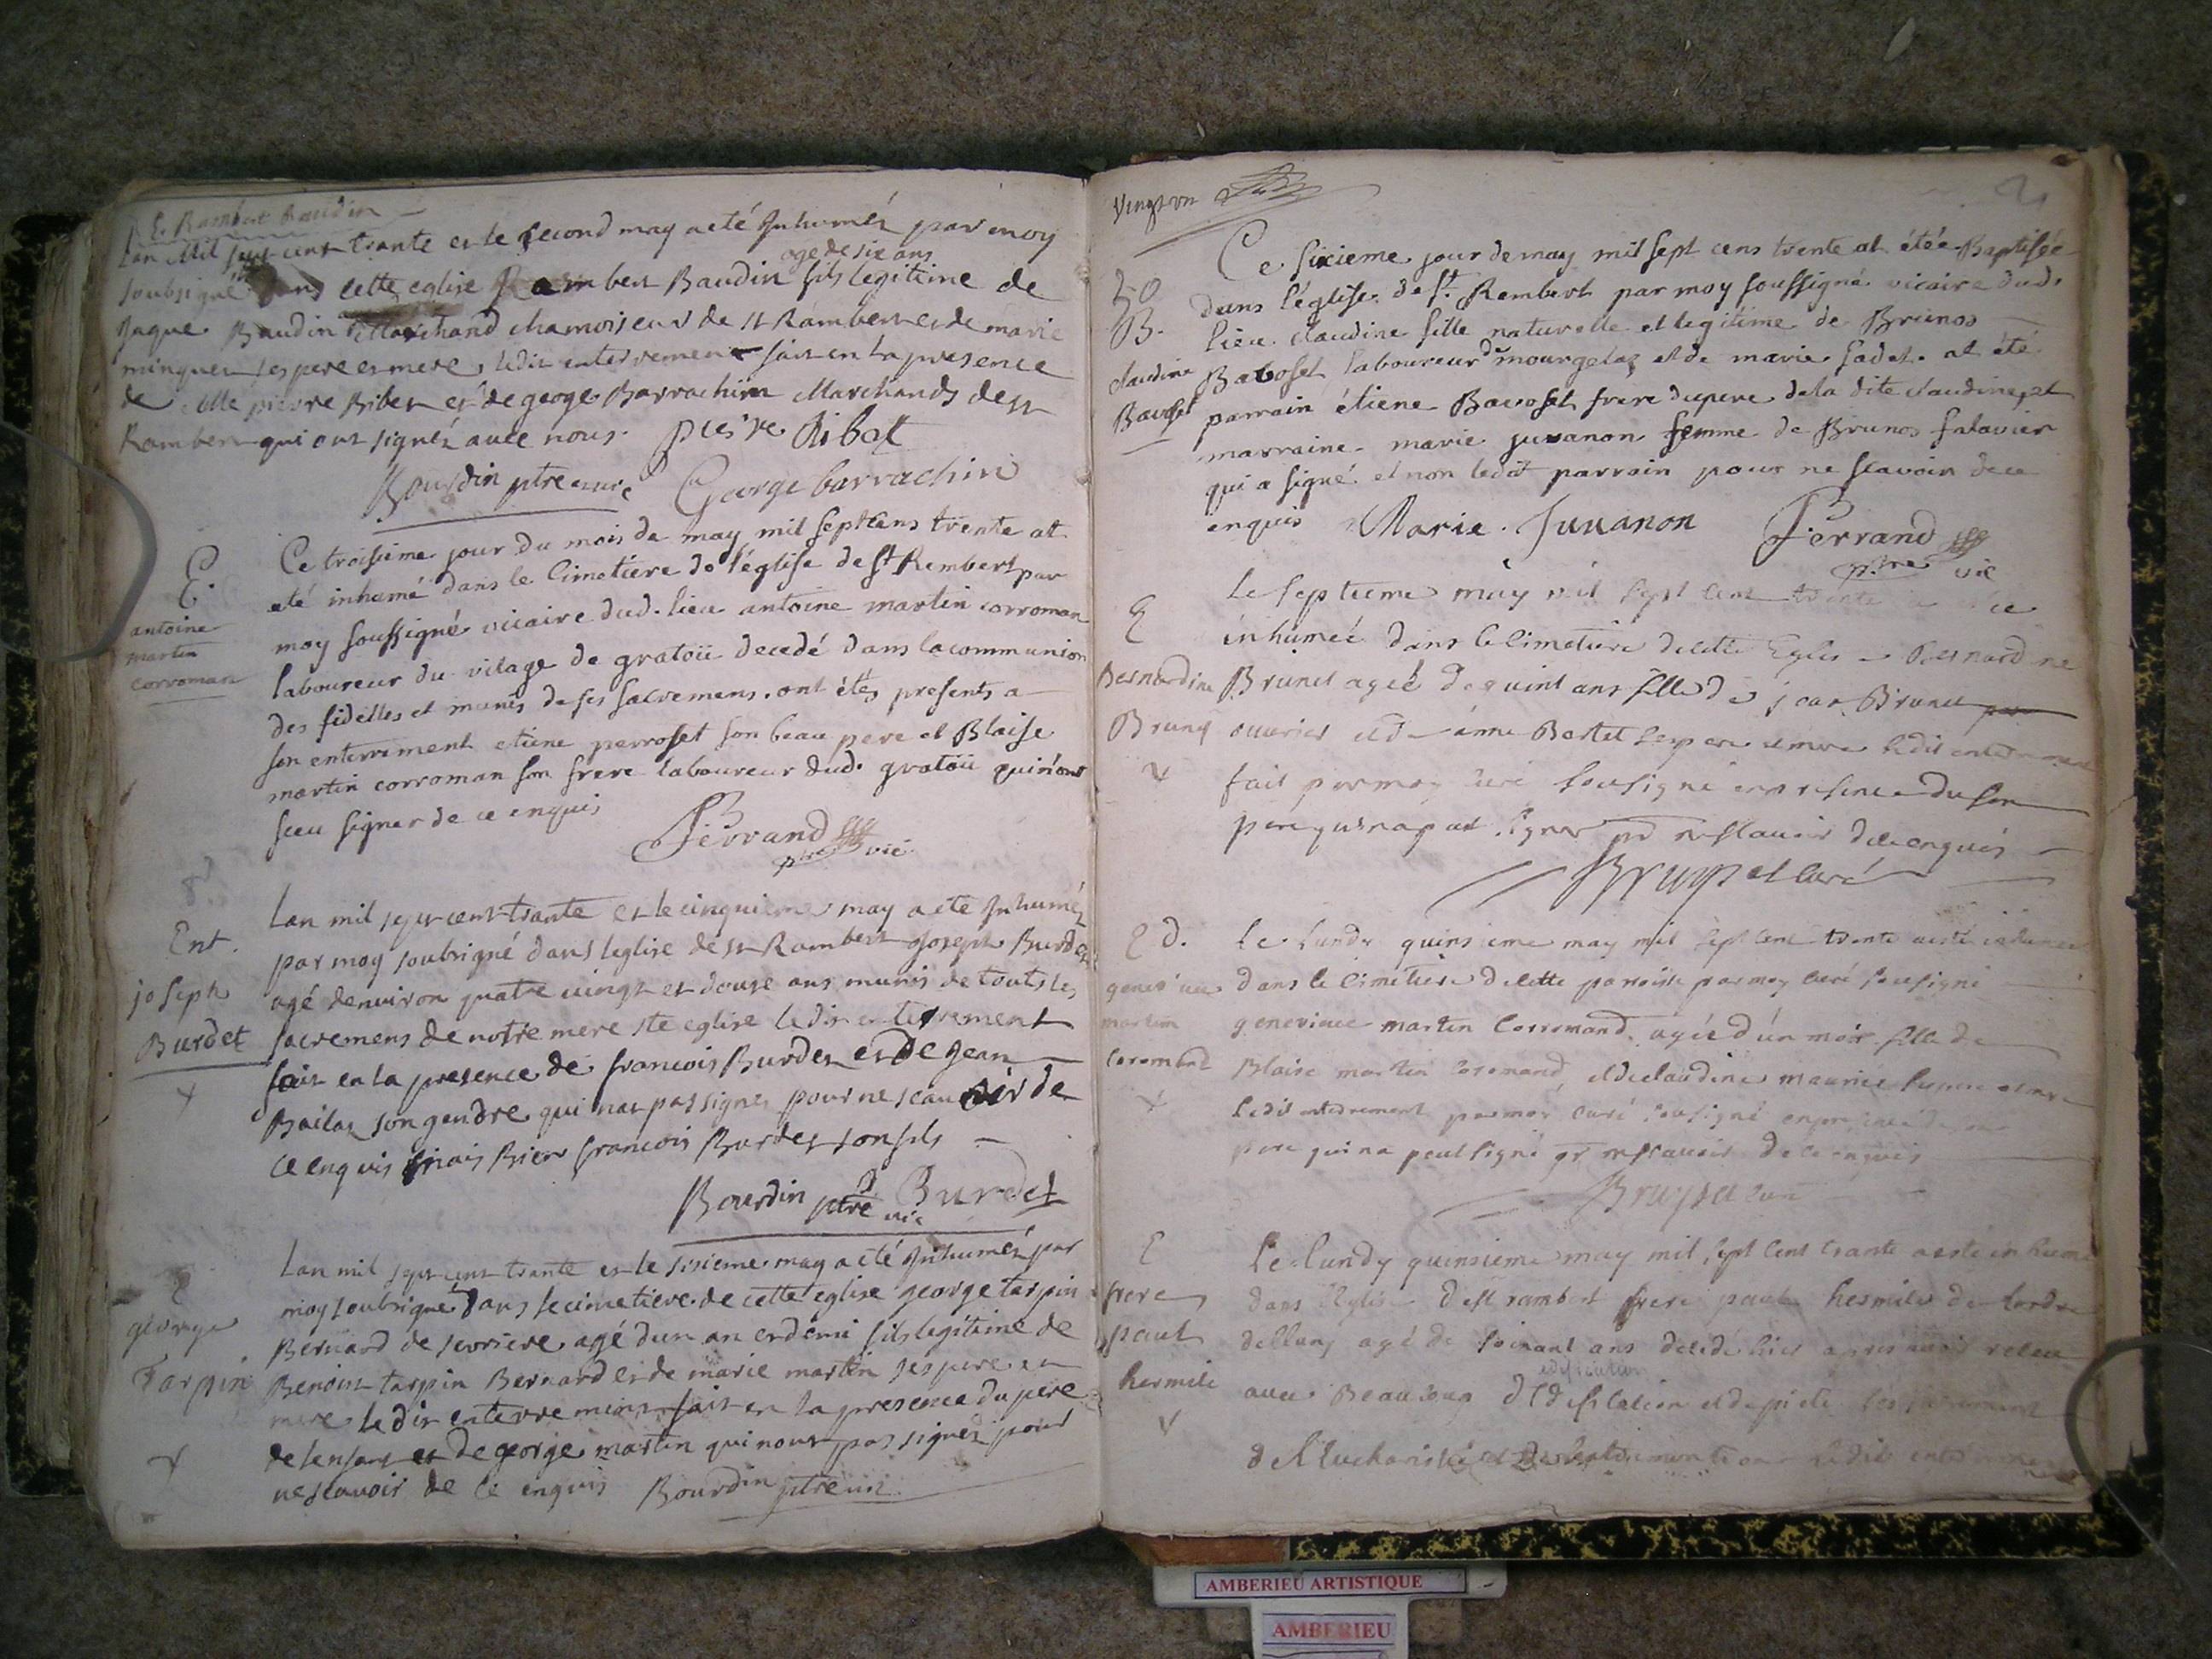 E. Rambert Baudin
Lan Mil sept cent trante et le second may a eté Inhuméz par moy
agé de six ans
soubsigné dans cette eglise Rambert Baudin fils legitime de
Jaque Baudin Marchand chamoiseur de st Rambert et de marie
minquet ses pere et mere, ledit enterrement fait en la presence
de pierre Ribet et de george Barrachin Marchands de st
Rambert qui ont signéz avec nous. pierre Ribet
Bourdin ptre curé George barrachin
E.
antoine
martin
corroman
Ce troisième jour du mois de may mil sept cens trente at
eté inhumé dans le Cimetière de l'église de st Rembert par
moy soussigné vicaire dud. lieu antoine martin corroman
laboureur du vilage de gratoü decedé dans la communion
des fidelles et munis de ses sacremens. ont étés presents a
son enterrement etiene perroset son beau pere et Blaise
martin corroman son frere laboureur dud. gratoü qui n'ont
sceu signer de ce enquis
Ferrand ptre vic
Ent.
joseph
Burdet
Lan mil sept cent trante et le cinquieme may a eté Inhuméz
par moy soubsigné dans leglise de st Rambert Joseph Burdet
agé denviron quatre vingt et douze ans munis de touts les
sacremens de notre mere ste eglise ledit enterrement
fait en la presence de francois Burdet et de Jean
Bailat son gendre qui nat pas signez pour ne scauoir de
ce enquis mais Bien francois Burdet son fils
Bourdin ptre vic Burdet
george
Tarpin
Lan mil sept cent trante et le sixieme may a eté Inhuméz par
moy soubsigné dans le cimetiere de cette eglise george tarpin
Bernard de serriere agé dun an et demi fils legitime de
Benoist tarpin Bernard et de marie martin ses pere et
mere ledit enterrement fait en la presence du pere
de lenfant et de george martin qui nont pas signéz pour
ne scauoir de ce enquis Bourdin ptre vic
Vingt vn
21
50
B.
claudine
Bavoset
Ce sixieme jour de may mil sept cens trente at étée Baptisée
dans l'église de st. Rembert par moy soussigné vicaire dud.
lieu claudine fille naturelle et legitime de Brunos
Bavoset laboureur de mourgelaz et de marie fadet. at été
parrain étiene Bavoset frere du pere de la dite claudine, et
marraine marie juvanon femme de Brunos falavier
qui a signé et non ledit parrain pour ne scavoir de ce
enquis Marie Juuanon Ferrand
ptre vic
E
Bernardine
Brunet
le septieme may mil sept cent trente a été
inhumeé dans le cimetiere de cette Eglise Bernardine
Brunet agée de quint ans fille de jean Brunet
ouvrier et de anne Bertet ses pere et mere ledit enterrement
fait par moy curé sousigné en presence du son
pere qui n'a peut signer pr ne scauoir de ce enquis
Bruyset curé
E d.
genevieve
martin
Coromand
le Lundy quinsieme may mil sept cent trente a esté inhumee
dans le cimetiere de cette paroisse par moy curé sousigné
genevieve martin Corromand agée d'un mois fille de
Blaise martin Coromand, et de claudine maurice ses pere et mere
ledit enterrement par moy curé sousigné en presence de son
pere qui na peut signé pr ne scauoir de ce enquis
Bruyset curé
E
frere
paul
hermite
Le Lundy quinsieme may mil sept cent trante a esté inhumé
dans l'Eglise de st rambert frere paul hermite de lordre
agé de soixant ans decedé hier apres avoir receu
avec Beaucoup d'edification et de pieté les sacrement
de l'Eucharistie et de ledit enterrement
AMBERIEU ARTISTIQUE
AMBERIEU